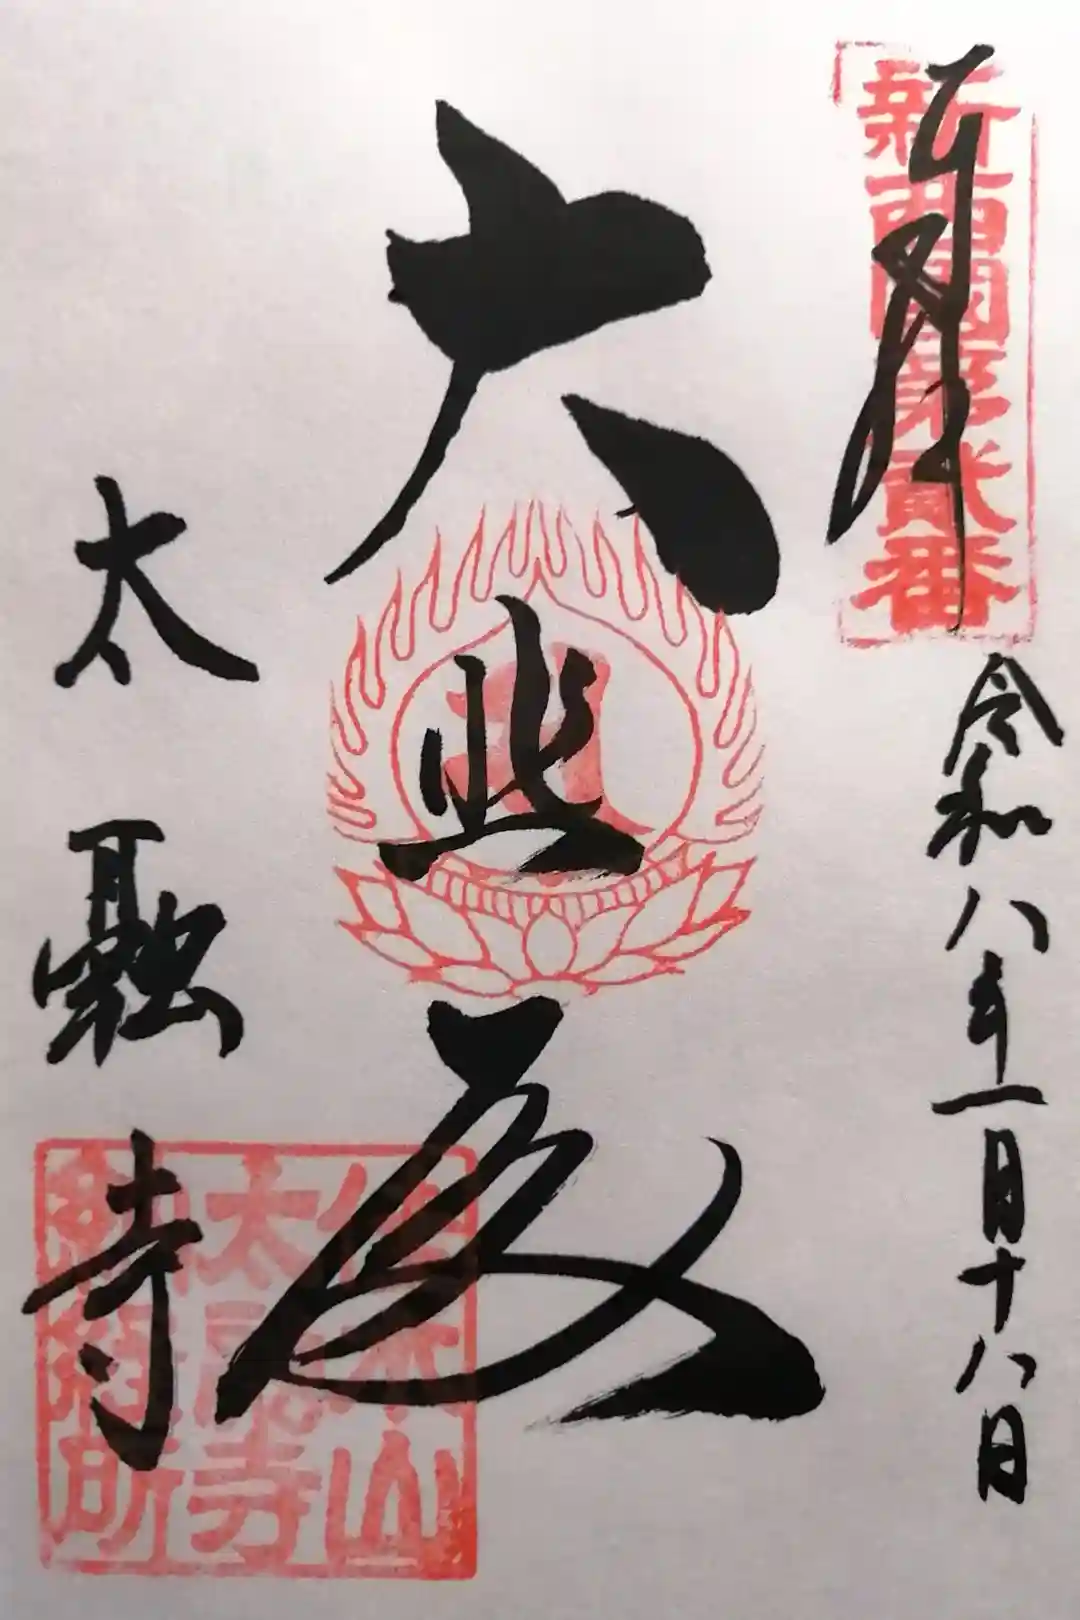 奉拝
新西國第貳番
令和八年一月十八日
大悲殿
太融寺
佳木山
太融寺
納經所